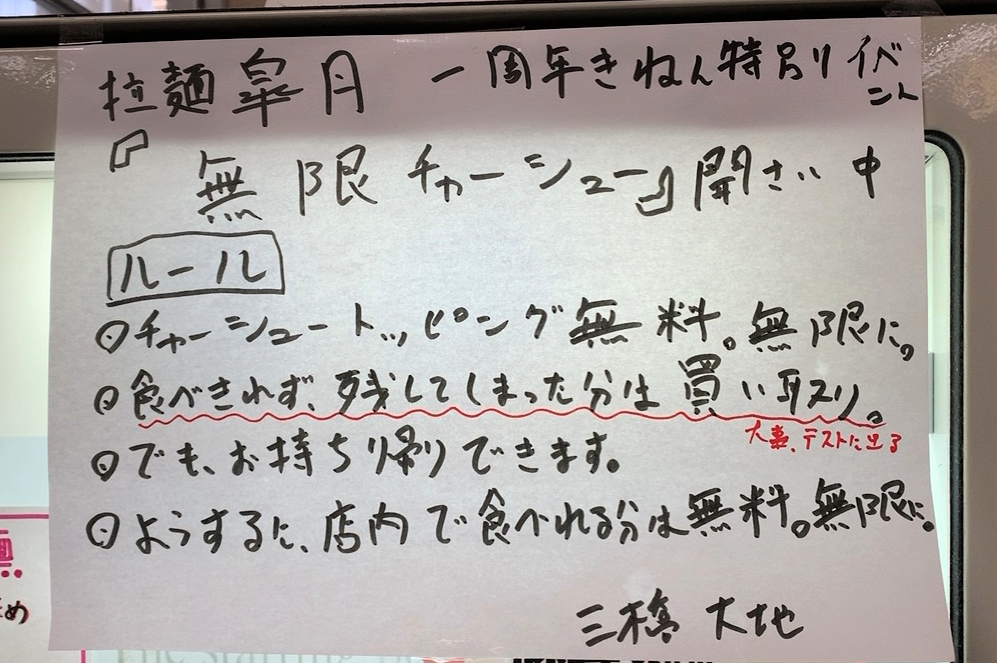 拉麺 皐月 一周年きねん特別イベント
『無限チャーシュー』開さい中
ルール
○チャーシュートッピング無料。無限に。
○食べきれず、残してしまった分は買い取り。
大事、テストに出る
○でも、お持ち帰りできます。
○ようするに、店内で食べれる分は無料。無限に。
三橋 大地